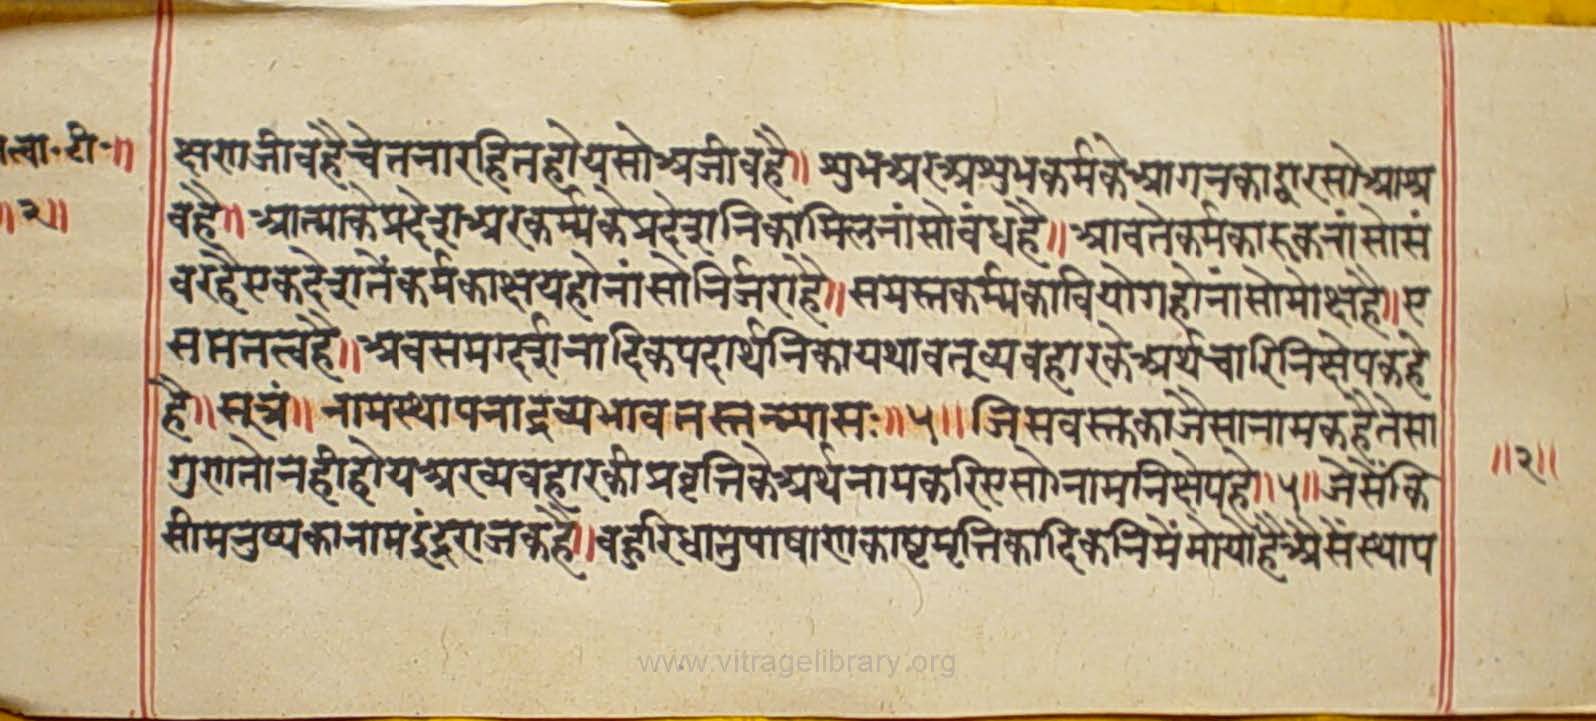 त्वा॰ टी॰ ॥
॥२॥
क्षणजीवहैचेतनारहितहोयसोअजीवहै॥ शुभअरअशुभकर्मकेआगनकाद्वारसोआश्र
वहै॥ आत्माकेप्रदेशअरकर्म्मकेप्रदेशनिकामिलनांसोबंधहै॥ आवतेकर्मकारुकनांसोसं
वरहैएकदेशतेंकर्मकाक्षयहोनांसोनिर्जराहै॥ समस्तकर्म्मकावियोगहोनांसोमोक्षहै॥ ए
सप्ततत्वहै॥ अबसमग्दर्शनादिकपदार्थनिकायथावत्व्यवहारकेअर्थचारिनिक्षेपकहे
है॥ सूत्रं॥ नामस्थापनाद्रव्यभावतस्तन्न्यासः॥५॥ जिसवस्तकाजैसानामकहैतेसा
गुणतोनहीहोयअरव्यवहारकीप्रवृत्तिकेअर्थनामकरिएसोनामनिक्षेपहै॥५॥ जेसेंकि
सीमनुष्यकानामइंद्रराजकहै॥ बहुरिधातुपाषाणकाष्टमृत्तिकादिकनिमें हैअैसेंस्थाप
॥२॥
www.vitragelibrary.org